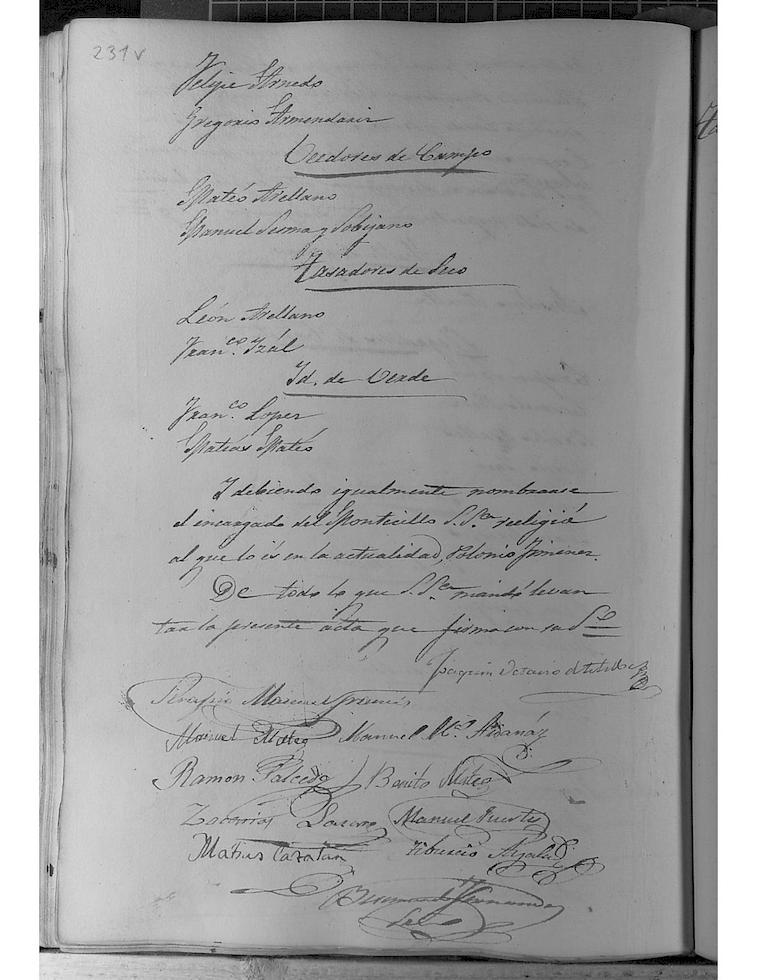 231v
Felipe Arnedo
Gregorio Armendariz
Veedores de Campo
Mateo Arellano
Manuel Sesma y Sobejano
Tasadores de Seco
León Arellano
Fran.co Izál
Id. de Verde
Fran.co Lopez
Matías Mateo
Y debiendo igualmente nombrarse
el encargado del Montecillo S.Sa. reeligió
al que lo és en la actualidad, Polonio Jimenez.
De todo lo que S.Sa. mandó levan
tar la presente acta que firma con su
Joaquin Octavio de
Serafin Manuel
Manuel Mateo Manuel Ma. Aldanáz
Ramon Salcedo Benito Mateo
Zacarias Lazaro Manuel Fuertes
Matias Catalan Tiburcio
Bernardo Hernandez